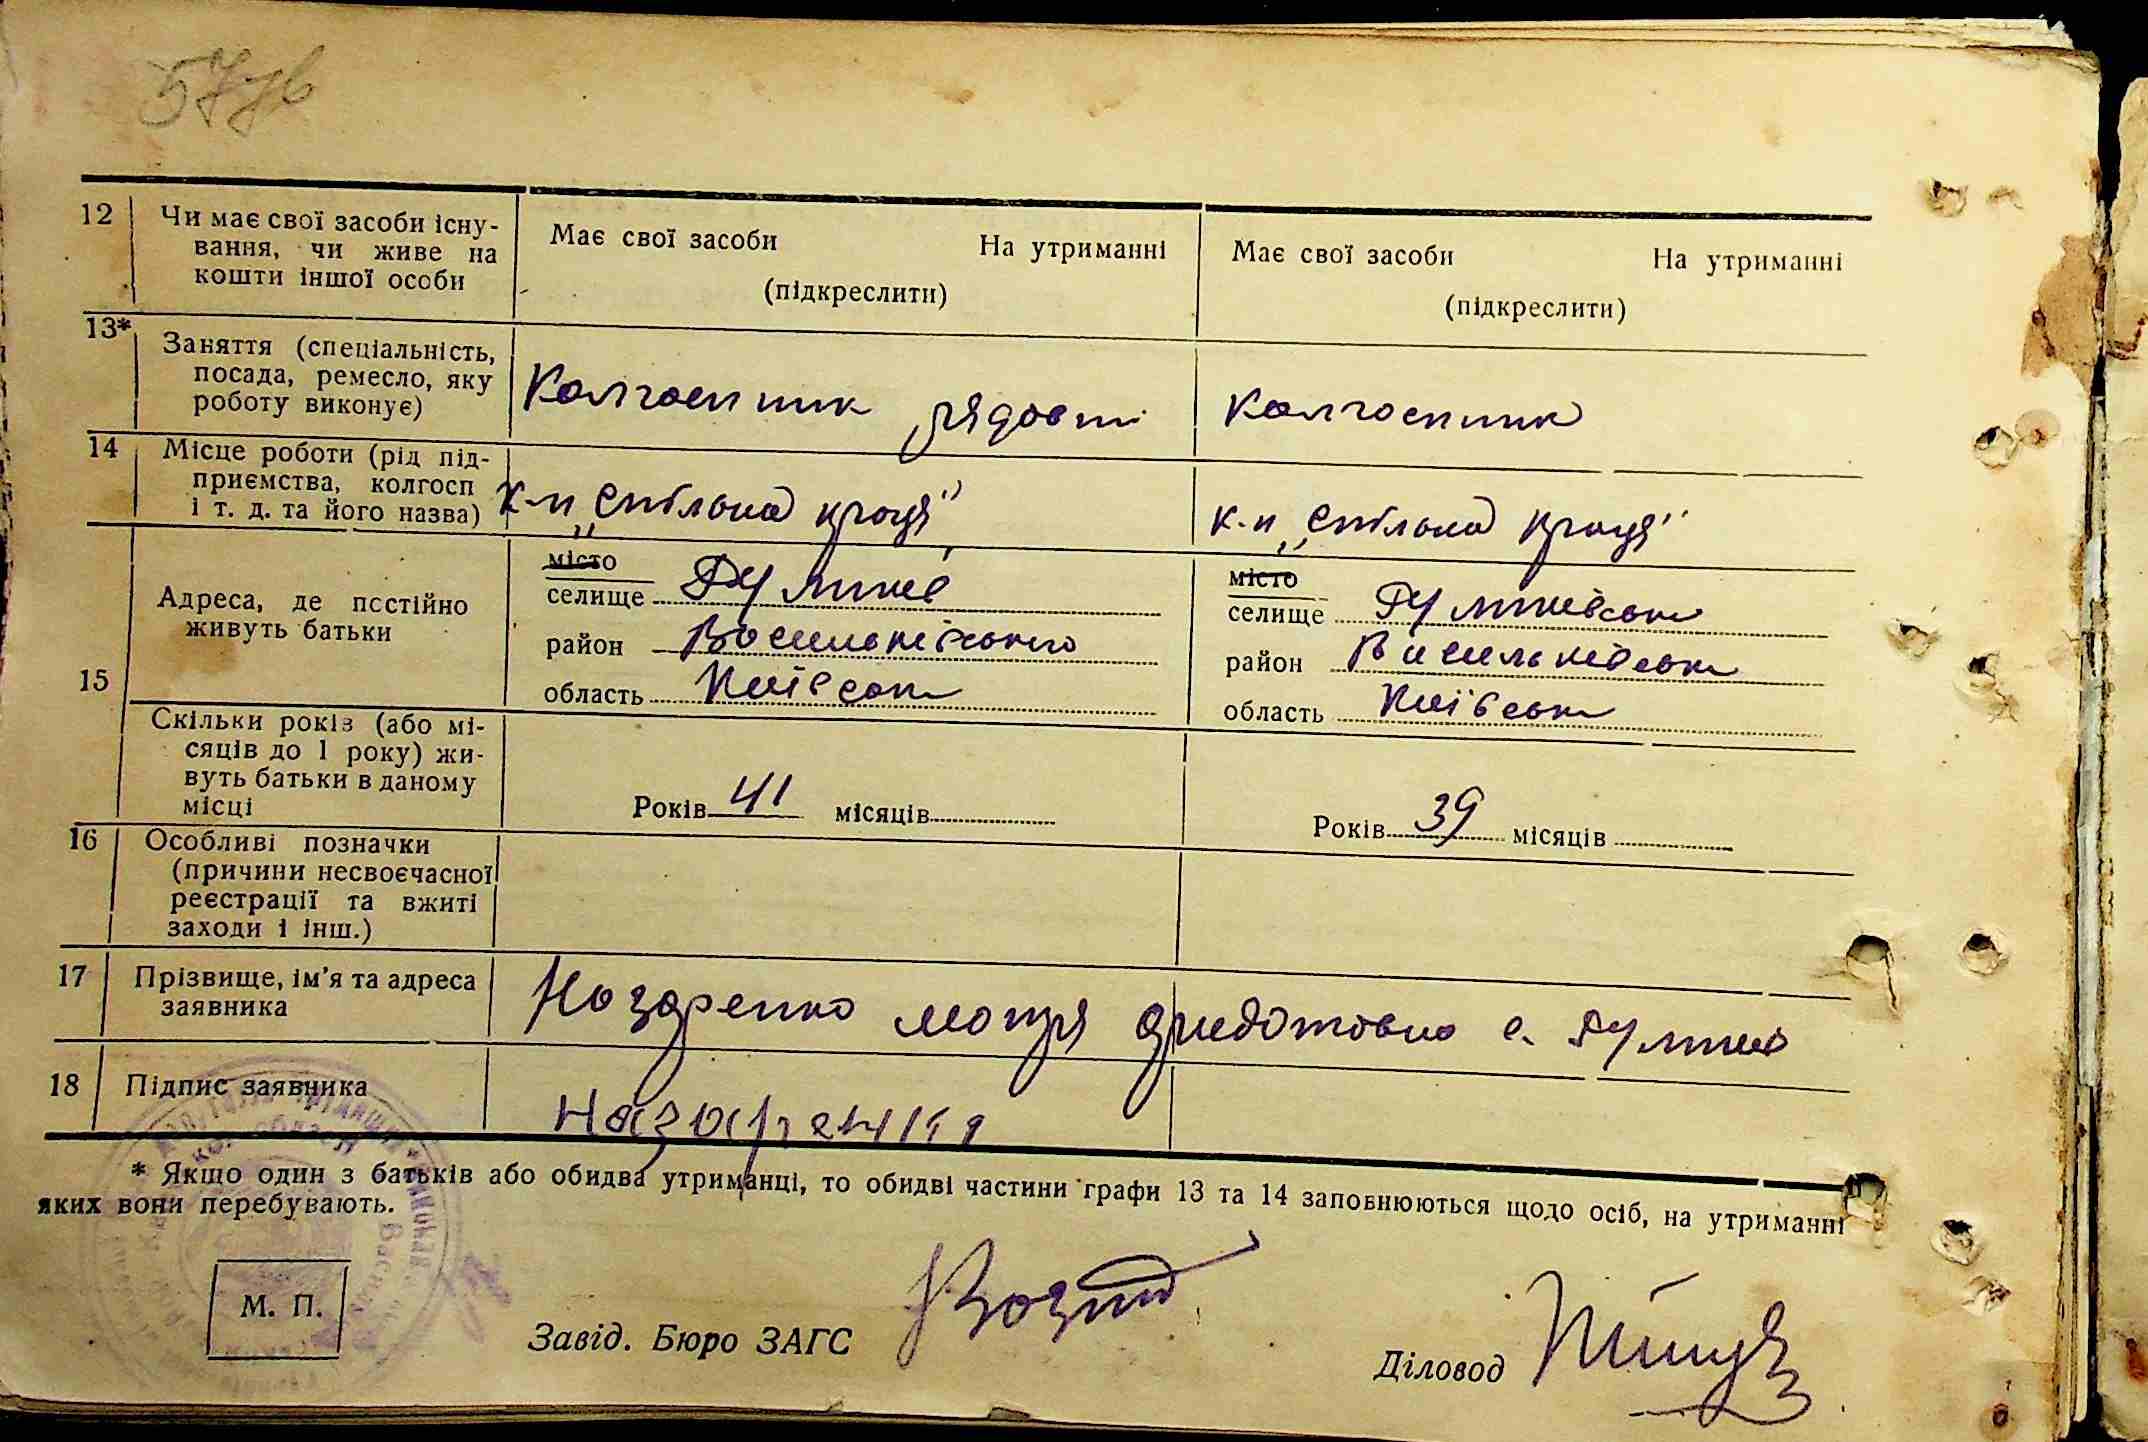 577в
12 Чи має свої засоби існу-
вання, чи живе на
кошти іншої особи
Має свої засоби На утриманні
(підкреслити)
Має свої засоби На утриманні
(підкреслити)
13* Заняття (спеціальність,
посада, ремесло, яку
роботу виконує)
Колгоспник рядовий
колгоспник
14 Місце роботи (рід під-
приємства, колгосп
і т. д. та його назва)
к-п „Спільна праця"
к-п „Спільна праця"
15 Адреса, де постійно
живуть батьки
місто
селище
район Васильківського
область Київськ
місто
селище
район Васильківськ
область Київськ
Скільки років (або мі-
сяців до 1 року) жи-
вуть батьки в даному
місці
Років 41 місяців
Років 39 місяців
16 Особливі позначки
(причини несвоєчасної
реєстрації та вжиті
заходи і інш.)
17 Прізвище, ім'я та адреса
заявника
Назаренко Мотря Федотовна с.
18 Підпис заявника
Назаренко
* Якщо один з батьків або обидва утриманці, то обидві частини графи 13 та 14 заповнюються щодо осіб, на утриманні
яких вони перебувають.
М. П.
Завід. Бюро ЗАГС
Діловод